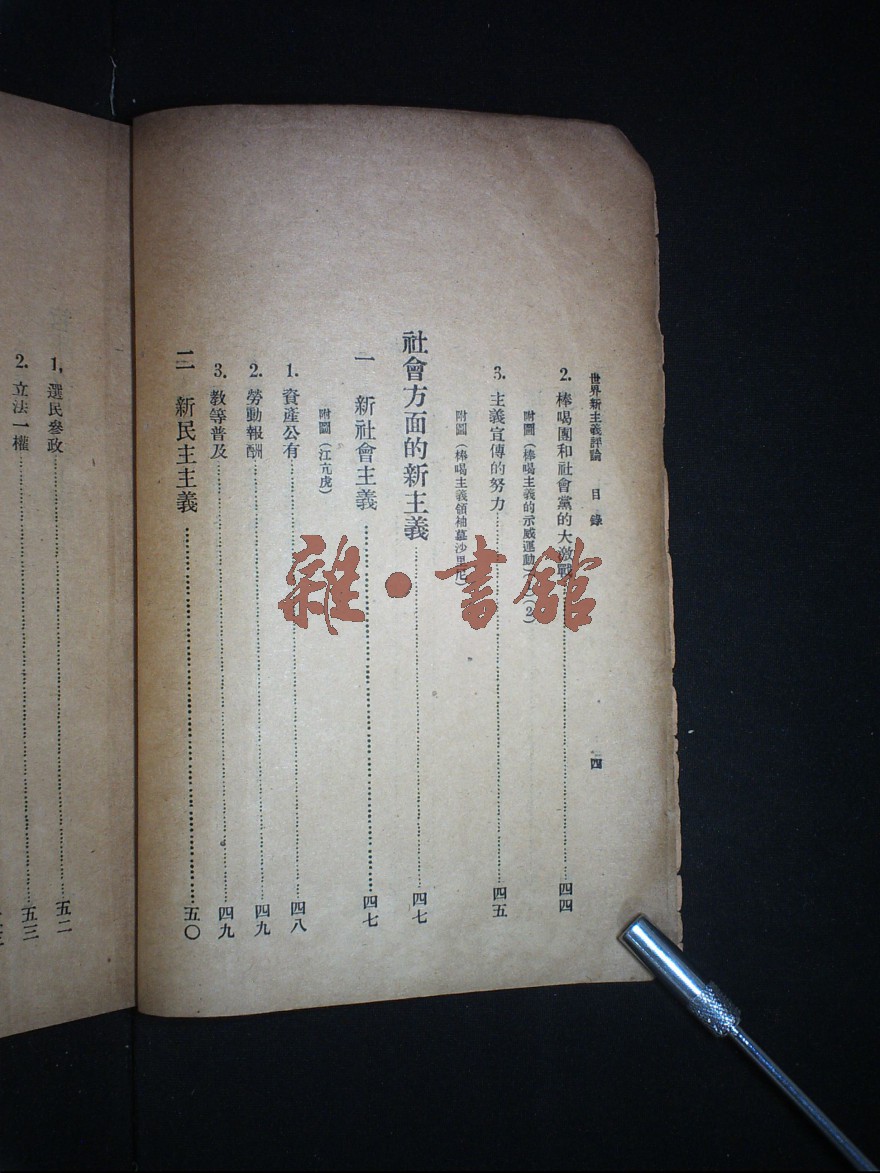 世界新主義評論 目錄 四
2. 棒喝團和社會黨的大激戰……四四
附圖（棒喝主義的示威運動）（2）
3. 主義宣傳的努力……四五
附圖（棒喝主義領袖墓沙里尼）
社會方面的新主義……四七
一 新社會主義……四七
附圖（江亢虎）
1. 資產公有……四八
2. 勞動報酬……四九
3. 教等普及……四九
二 新民主主義……五〇
1, 選民參政……五二
2. 立法一權……五三
雜·書館